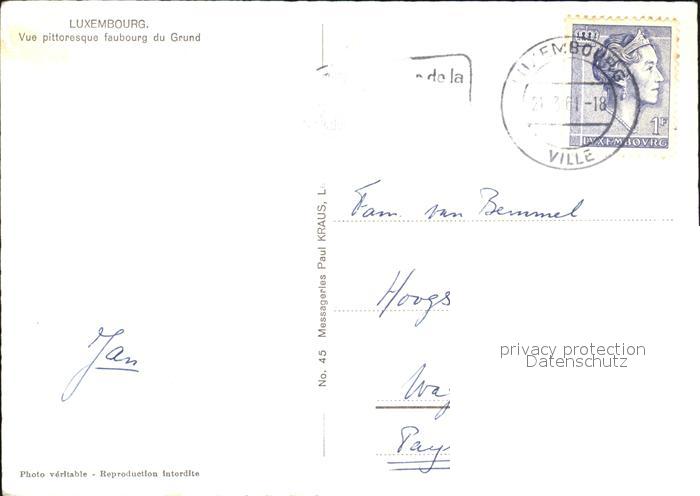 LUXEMBOURG.
Vue pittoresque faubourg du Grund
de la
LUXEMBOURG
-18
VILLE
1F
LUXEMBOURG
Fam. van Bemmel
Hoogs
Wag
Pay
Jan
privacy protection
Datenschutz
No. 45 Messageries Paul KRAUS, L
Photo véritable - Reproduction interdite